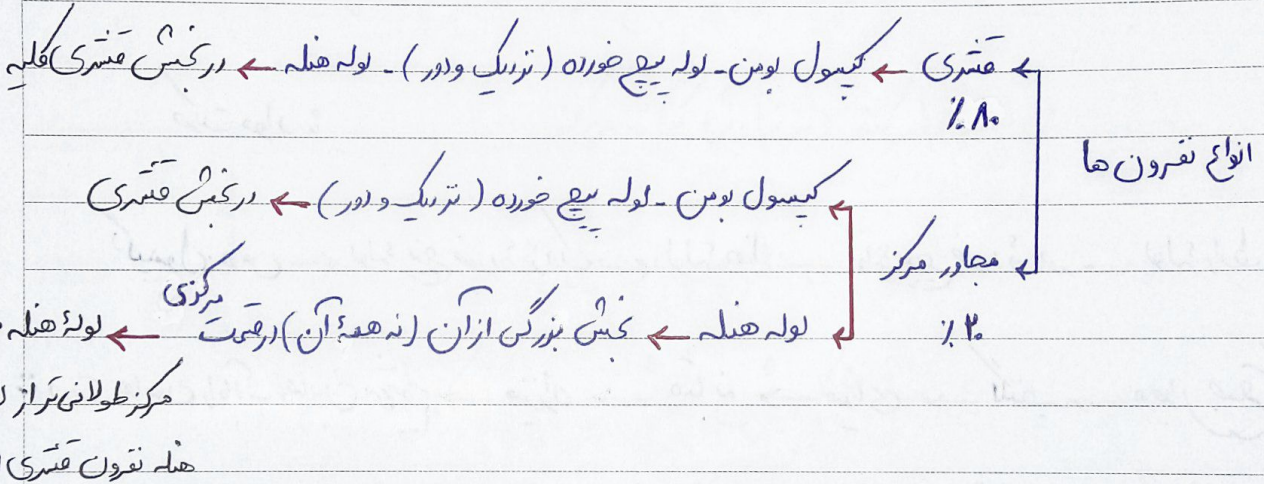 انواع نفرون ها
قشری ← کپسول بومن - لوله پیچ خورده (نزدیک و دور) - لوله هنله ← در بخش قشری کلیه
٪۸۰
مجاور مرکز
٪۲۰
کپسول بومن - لوله پیچ خورده (نزدیک و دور) ← در بخش قشری
لوله هنله ← بخش بزرگی از آن (نه همهٔ آن) در قسمت مرکزی ← لولهٔ هنله
مرکز طولانی تر از
هنله نفرون قشری